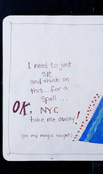 I need to just
sit
and think on
this.. for a
spell...
OK, NYC
take me away!
(on my magic carpet)